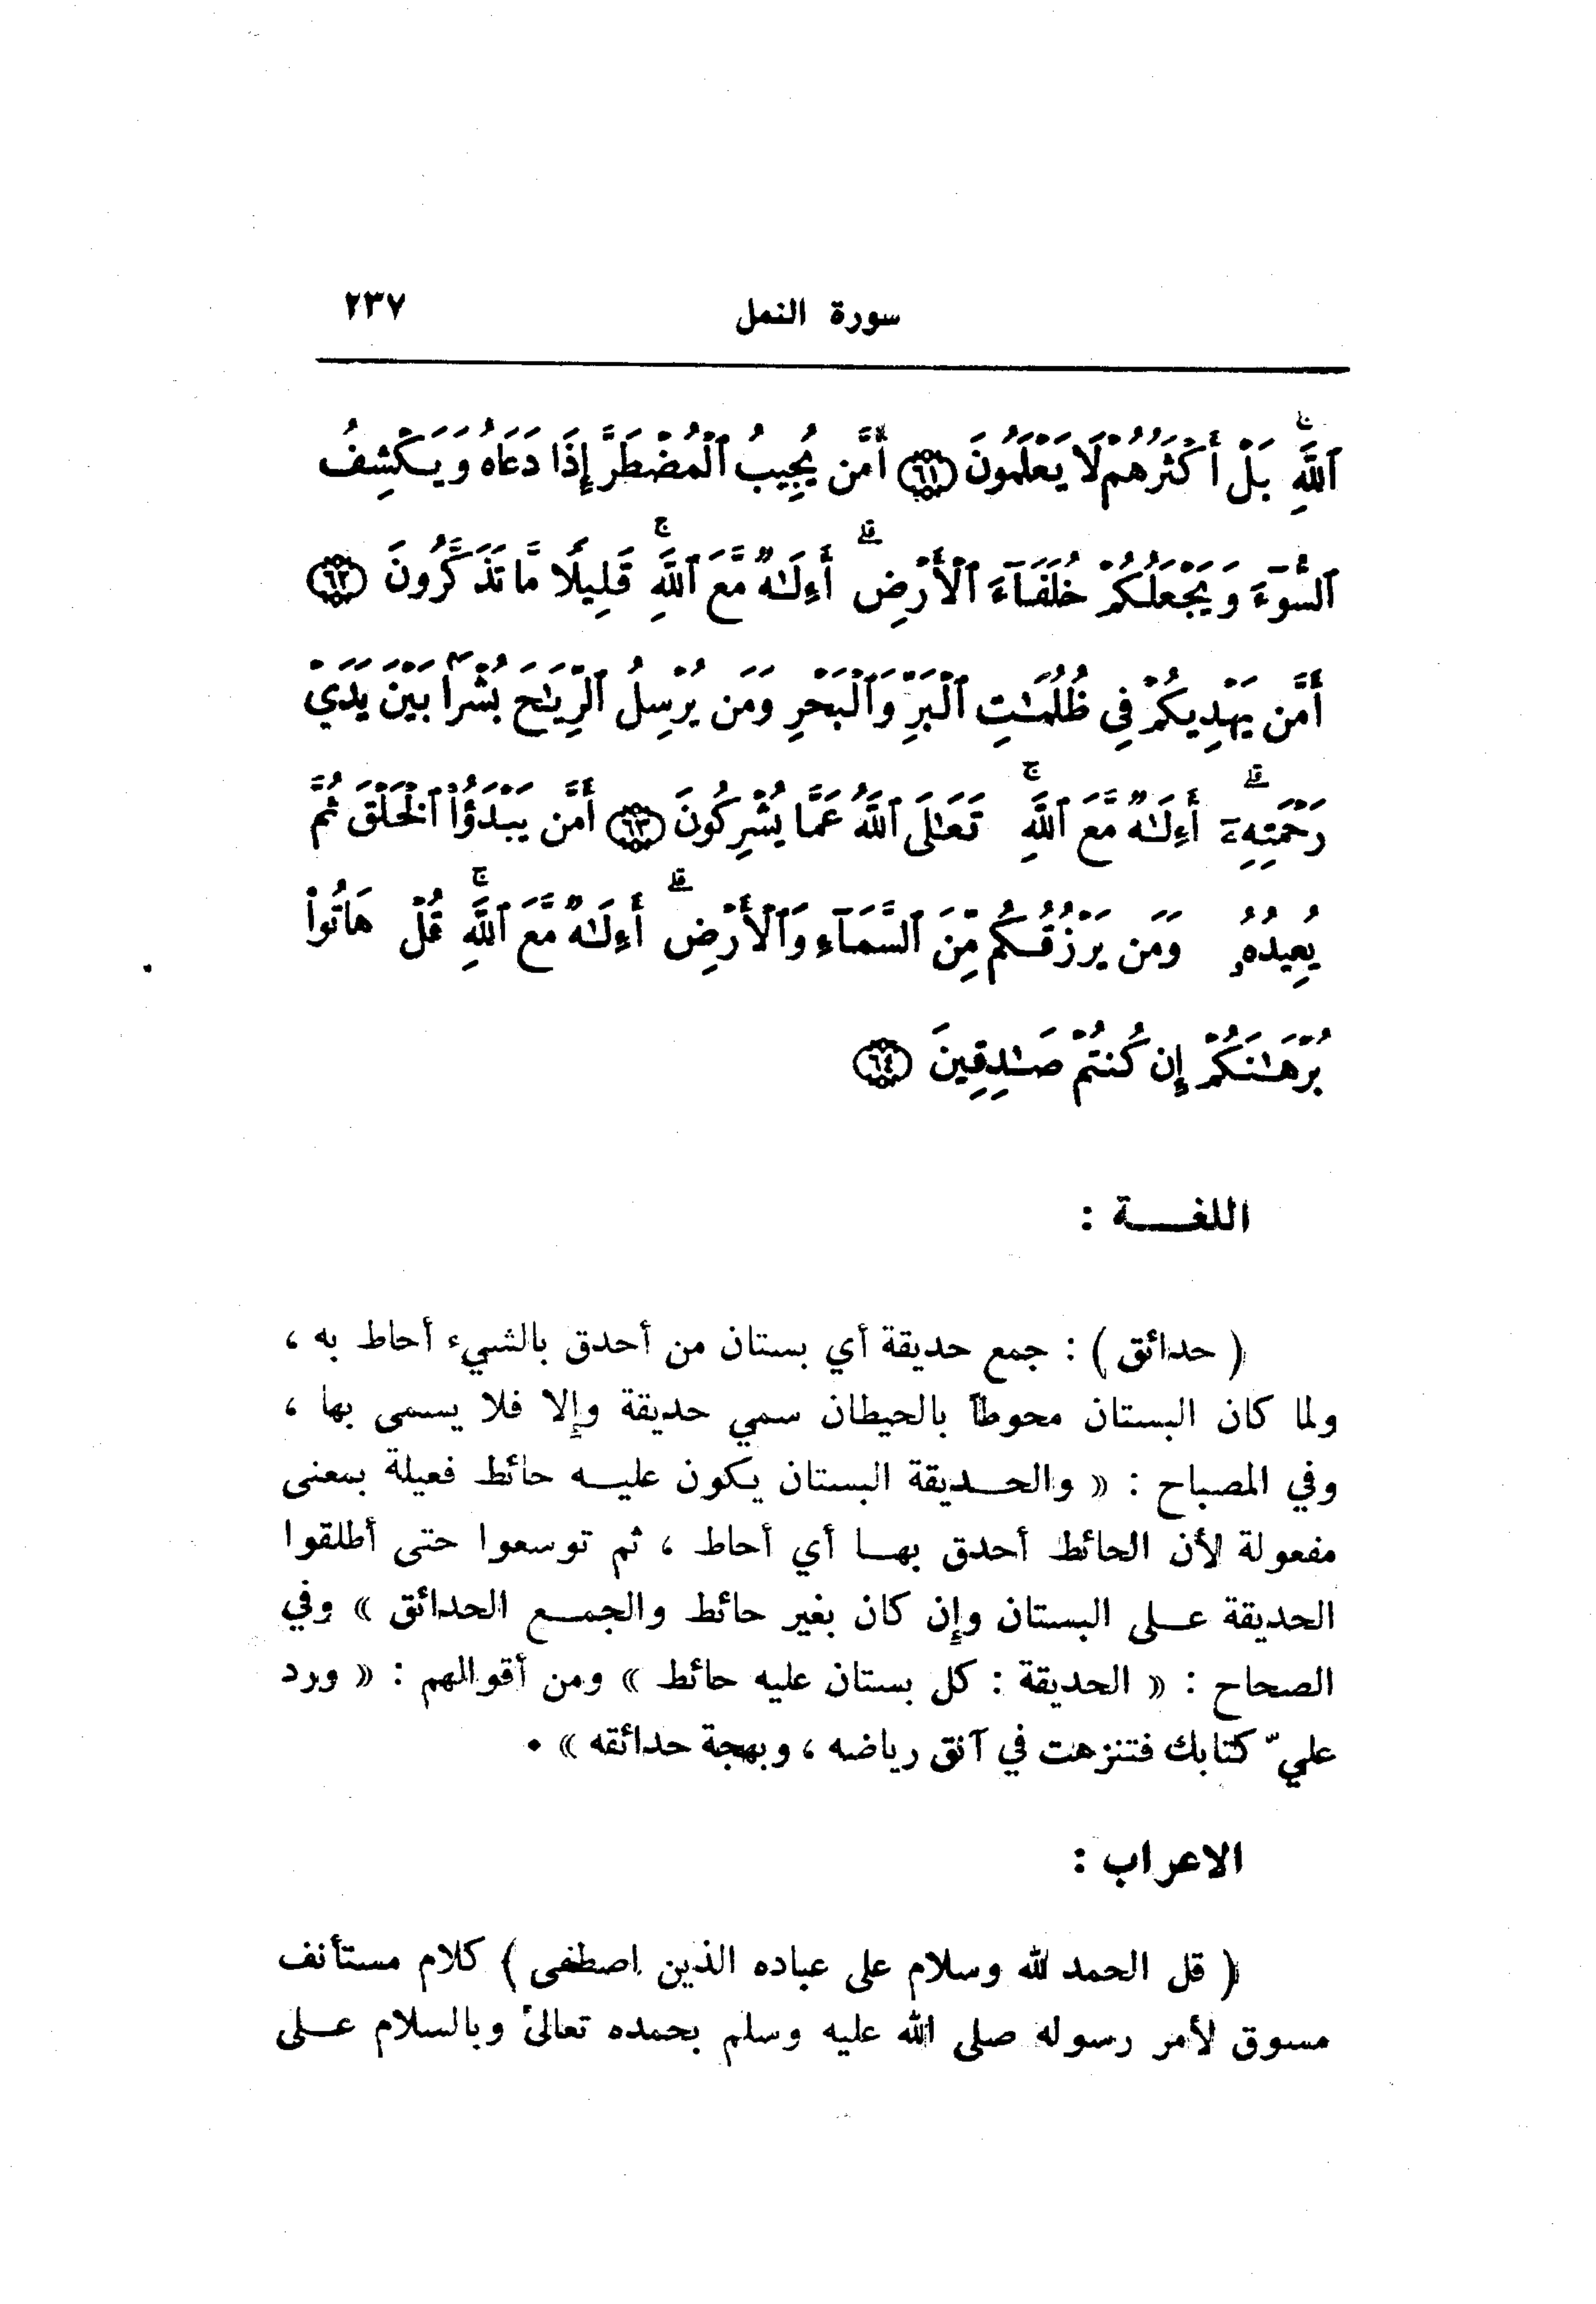 سورة النمل ٢٣٧
ٱللَّهِ ۚ بَلْ أَكْثَرُهُمْ لَا يَعْلَمُونَ ﴿٦١﴾ أَمَّن يُجِيبُ ٱلْمُضْطَرَّ إِذَا دَعَاهُ وَيَكْشِفُ
ٱلسُّوٓءَ وَيَجْعَلُكُمْ خُلَفَآءَ ٱلْأَرْضِ ۗ أَءِلَـٰهٌ مَّعَ ٱللَّهِ ۚ قَلِيلًا مَّا تَذَكَّرُونَ ﴿٦٢﴾
أَمَّن يَهْدِيكُمْ فِى ظُلُمَـٰتِ ٱلْبَرِّ وَٱلْبَحْرِ وَمَن يُرْسِلُ ٱلرِّيَـٰحَ بُشْرًۢا بَيْنَ يَدَىْ
رَحْمَتِهِۦٓ ۗ أَءِلَـٰهٌ مَّعَ ٱللَّهِ ۚ تَعَـٰلَى ٱللَّهُ عَمَّا يُشْرِكُونَ ﴿٦٣﴾ أَمَّن يَبْدَؤُا۟ ٱلْخَلْقَ ثُمَّ
يُعِيدُهُۥ وَمَن يَرْزُقُكُم مِّنَ ٱلسَّمَآءِ وَٱلْأَرْضِ ۗ أَءِلَـٰهٌ مَّعَ ٱللَّهِ ۚ قُلْ هَاتُوا۟
بُرْهَـٰنَكُمْ إِن كُنتُمْ صَـٰدِقِينَ ﴿٦٤﴾
اللغــــة :
( حدائق ) : جمع حديقة أي بستان من أحدق بالشيء أحاط به ،
ولما كان البستان محوطاً بالحيطان سمي حديقة وإلا فلا يسمى بها ،
وفي المصباح : « والحــديقة البستان يكون عليــه حائط فعيلة بمعنى
مفعولة لأن الحائط أحدق بهــا أي أحاط ، ثم توسعوا حتى أطلقوا
الحديقة عــلى البستان وإن كان بغير حائط والجمــع الحدائق » وفي
الصحاح : « الحديقة : كل بستان عليه حائط » ومن أقوالهم : « ورد
عليّ كتابك فتنزهت في آنق رياضه ، وبهجة حدائقه » .
الاعراب :
( قل الحمد لله وسلام على عباده الذين اصطفى ) كلام مستأنف
مسوق لأمر رسوله صلى الله عليه وسلم بحمده تعالى وبالسلام عــلى